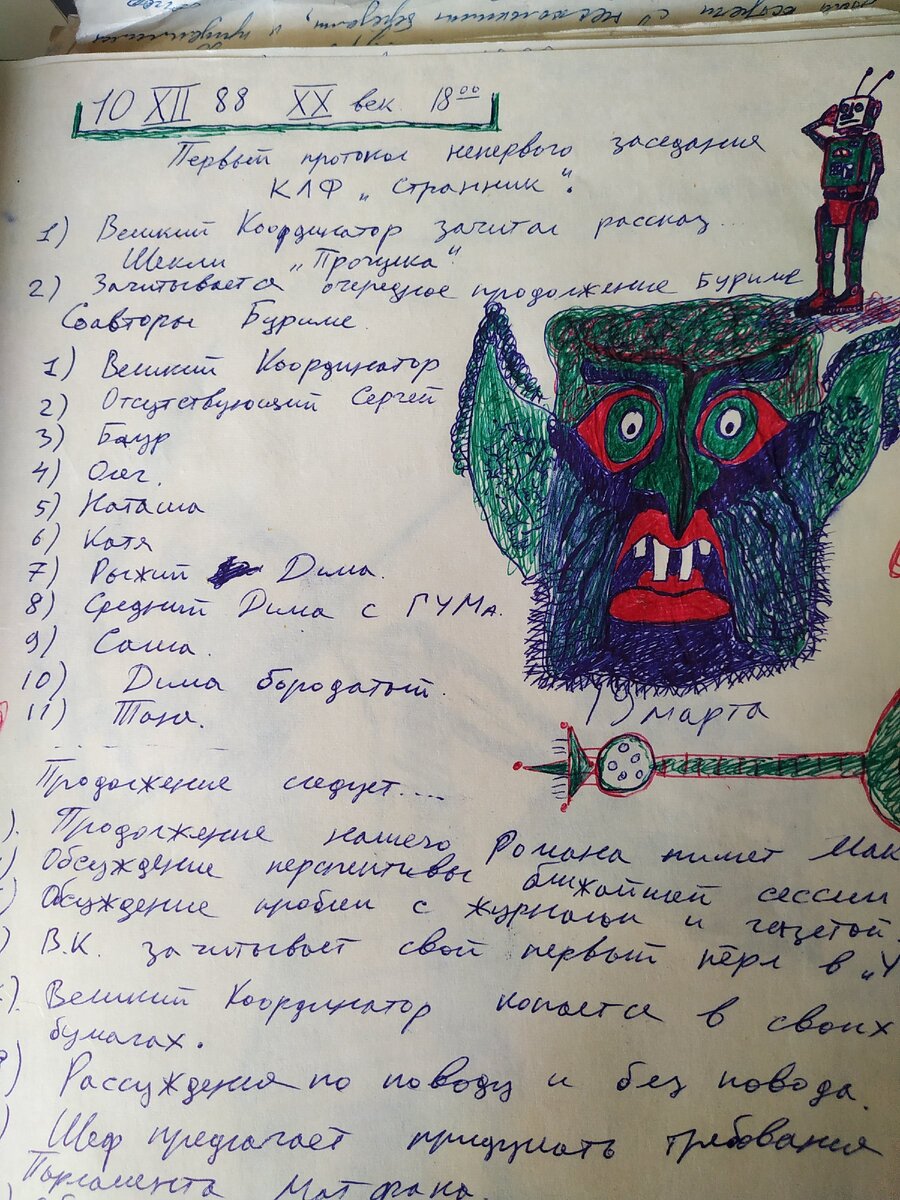 10 XII 88 XX век 18⁰⁰
Первый протокол непервого заседания
КЛФ „Странник".
1) Великий Координатор зачитал рассказ...
Шекли „Прогулка"
2) Зачитывается очередное продолжение Буриме
Соавторы Буриме
1) Великий Координатор
2) Отсутствующий Сергей
3) Баур
4) Олег.
5) Наташа
6) Катя
7) Рыжий Дима.
8) Средний Дима с ГУМа.
9) Саша.
10) Дима бородатый.
11) Таня.
19 марта
Продолжение следует....
). Продолжение нашего Романа пишет Мак
) Обсуждение перспективы ближайшей сессии
) Обсуждение проблем с журналом и газетой.
) В.К. зачитывает свой первый пёрл в „У
). Великий Координатор копается в своих
бумагах.
) Рассуждения по поводу и без повода.
) Шеф предлагает придумать требования
Парламента Матфана.